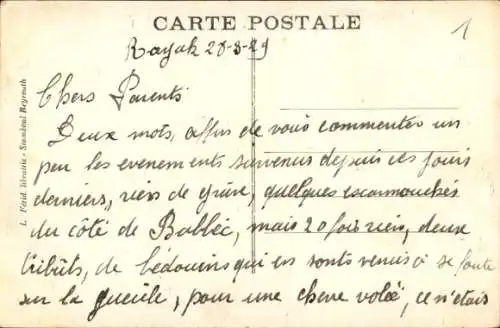 CARTE POSTALE
1
Rayak 28-3-29
Chers Parents
Deux mots, affin de vous commenter un
peu les evenements survenus depuis ces jours
derniers, rien de grave, quelques escarmouches
du côté de Balbec, mais 20 fois rien, deux
tribûts, de bédouins qui en sonts venus à se foute
sur la gueule, pour une chevre volée, ce n'étais
L. Férid, librairie - Stamboul Beyrouth